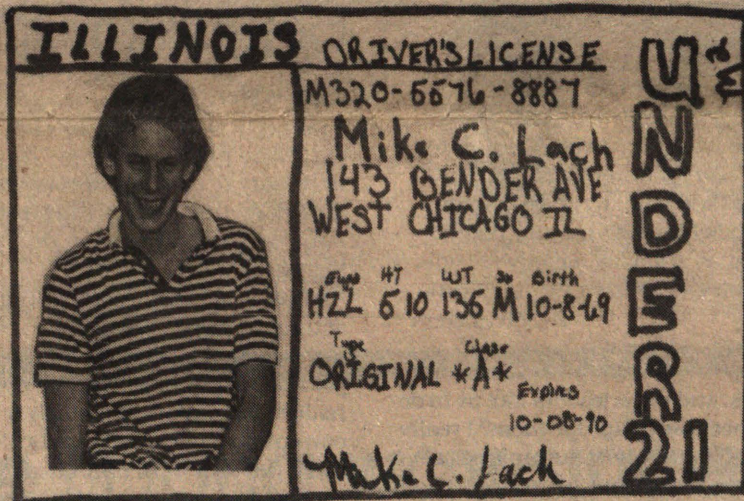 ILLINOIS DRIVER'S LICENSE
M320-5576-8887
Mike C. Lach
143 BENDER AVE
WEST CHICAGO IL
Eyes HT WT Sx Birth
HZL 510 135 M 10-8-69
Type Class
ORIGINAL *A*
Expires
10-08-90
Mike C. Lach
UNDER 21